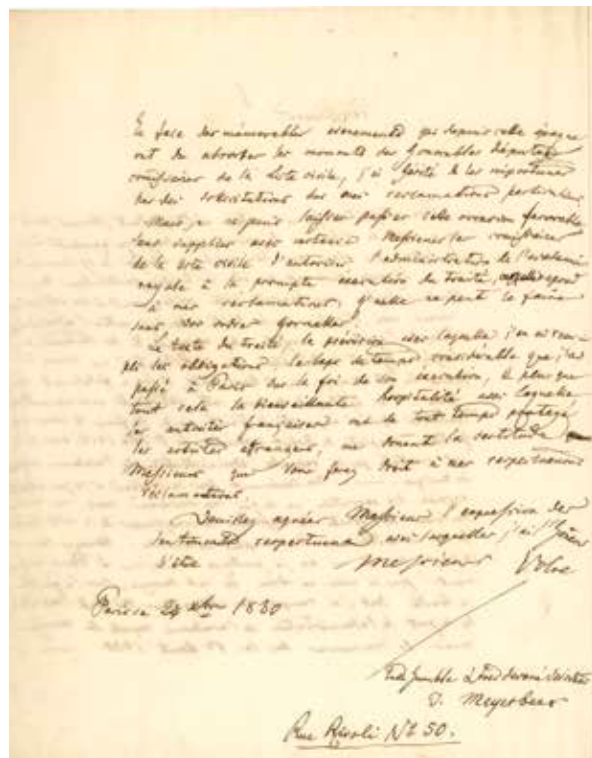 En face des mémorables évenements qui depuis cette époque
ont du absorber les moments des honorables députés
comissaires de la Liste civile, j'ai hesité à les importuner
par des sollicitations sur mes reclamations particulières
Mais je ne puis laisser passer cette occasion favorable
sans supplier avec instance Messieurs les comissaires
de la liste civile d'autoriser l'administration de l'académie
royale à la prompte execution du traité,
à mes reclamations, qu'elle ne peut faire
sans vos ordres formelles.
Le texte du traité, la précision avec laquelle j'en ai rem-
pli les obligations, le laps de temps considérable que j'ai
passé à Paris sur la foi de son execution, et plus que
tout cela la bienveillante hospitalité avec laquelle
les autorités françaises ont de tout temps protégé
les artistes étrangers, me donnent la certitude
Messieurs que Vous ferez droit à mes respectueuses
réclamations.
Daignez agréer Messieurs l'expression des
sentiments respectueux avec lesquelles j'ai l'honneur
d'être Messieurs Votre
Paris ce 24 xbre 1830
très humble & très devoué Serviteur
J. Meyerbeer
Rue Rivoli No 50.